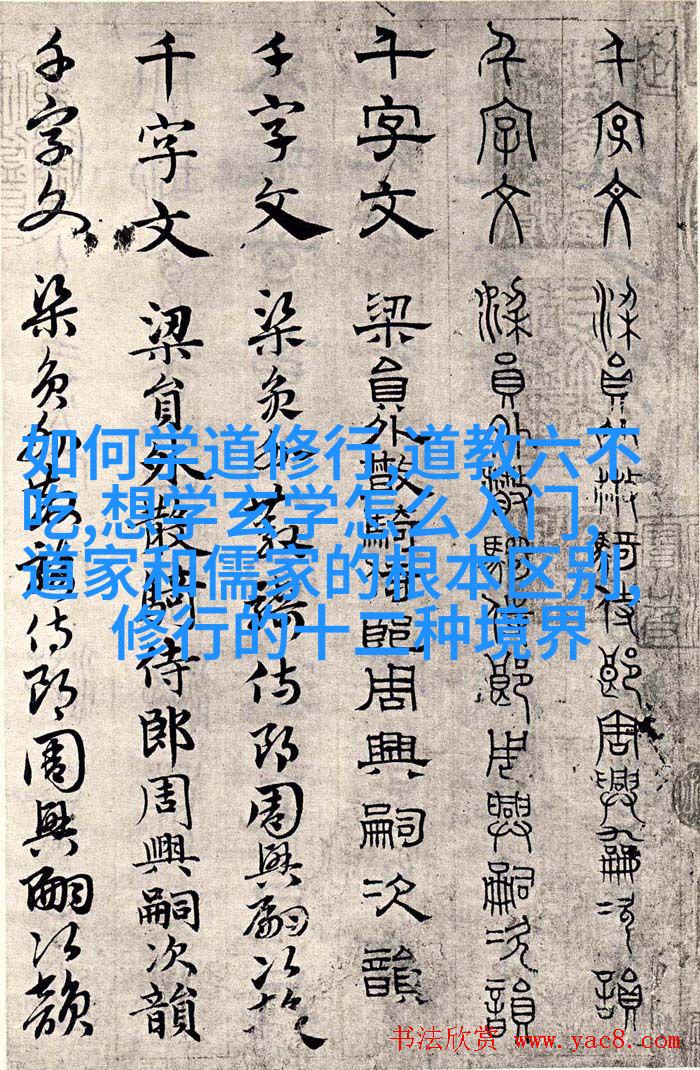 千字文 梁員外散騎侍郎周興嗣次韻
千字文 梁員外散騎侍郎周興嗣次韻
千字文 梁員外散騎侍郎周興嗣次韻
千字文 梁員外散騎侍郎周興嗣次韻
千字文 梁員外散騎侍郎周興嗣次韻
千字文 梁員外散騎侍郎周興嗣次韻
如何学道修行,道教六不
吃,想学玄学怎么入门,
道家和儒家的根本区别,
修行的十二种境界
书法欣赏 www.yac8.com